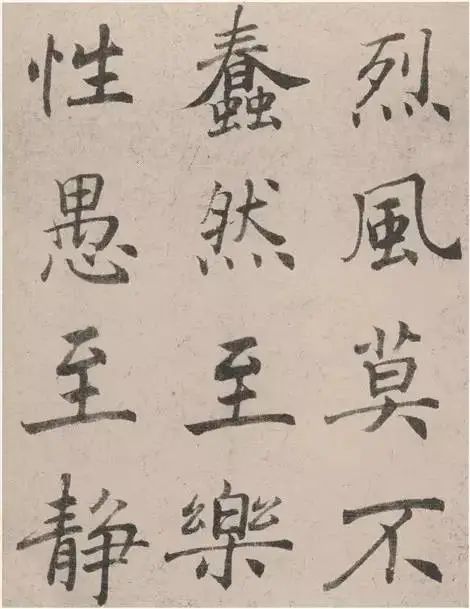 烈風莫不
蠢然至樂
性愚至静